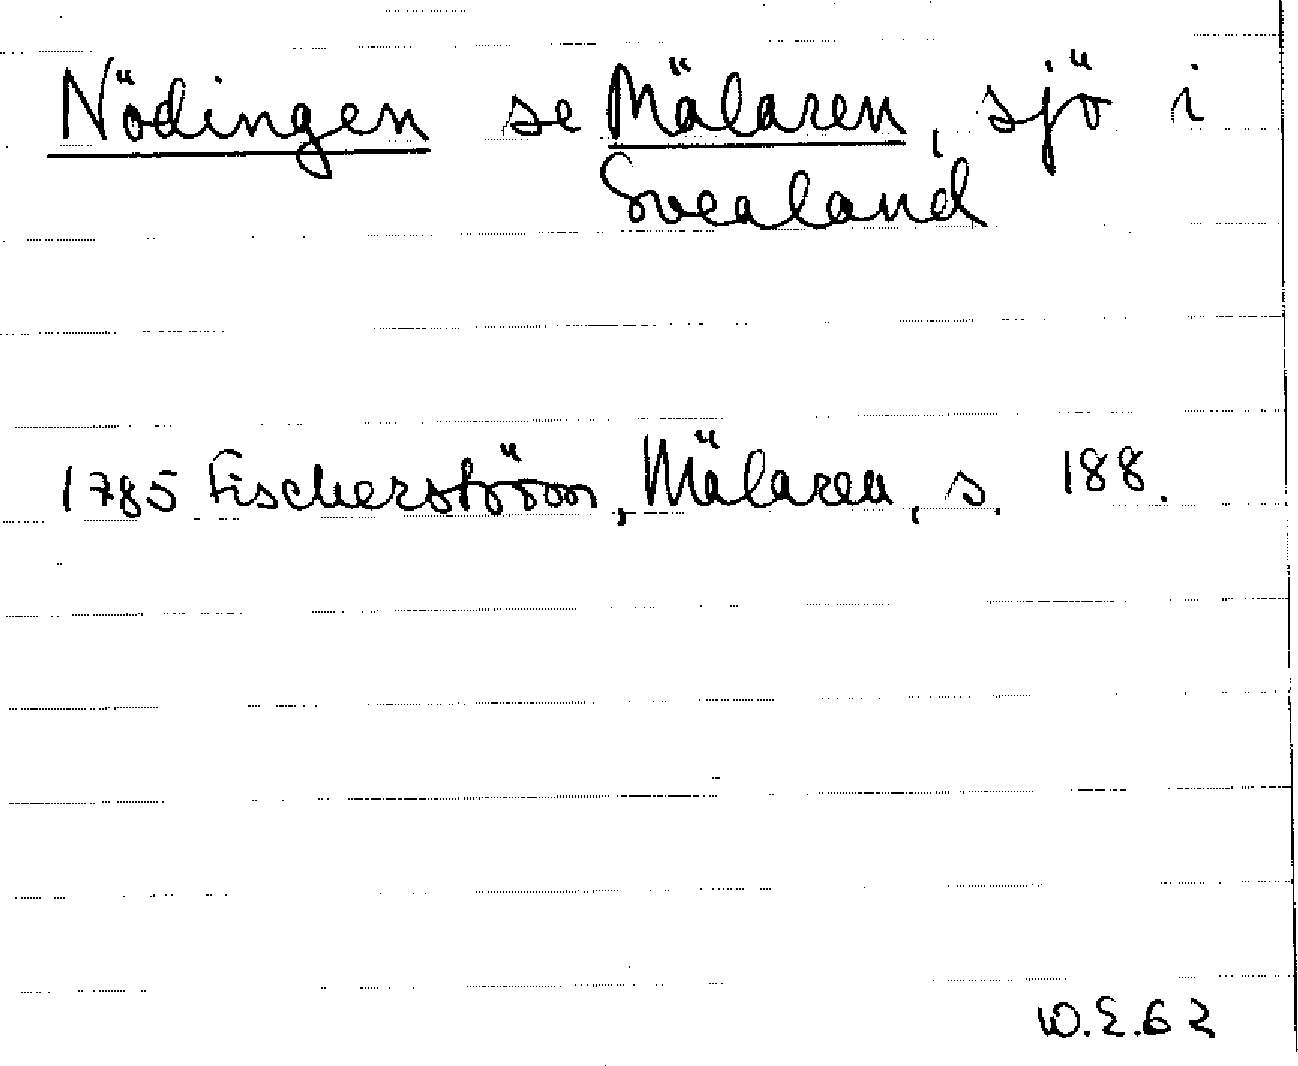 Nödingen se Mälaren, sjö i
Svealand
1785 Fischerström, Mälaren, s. 188.
W.E.62